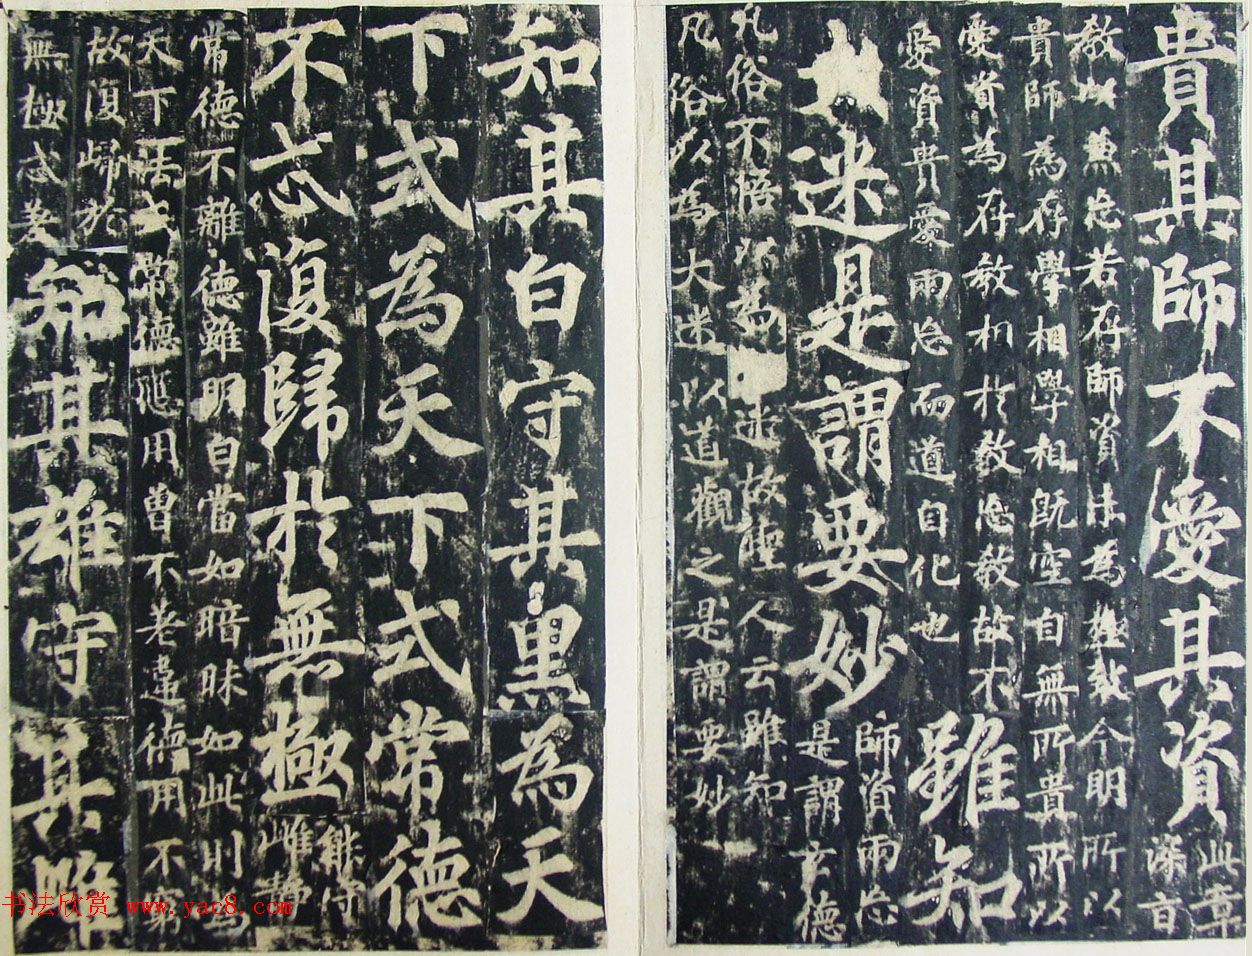 貴其師不愛其資
此章
深旨
教以兼忘若存師資未為極致今明所以
貴師為存學相學相既空自無所貴所以
愛資為存教相於教忘教故不
愛資貴愛兩忘而道自化也
雖知
迷是謂要妙
師資兩忘
是謂玄德
凡俗不悟以為 近故聖人云雖知
凡俗以為大迷以道觀之是謂要妙
知其白守其黑為天
下式為天下式常德
不忒復歸於無極
能守
雌靜
常德不離德雖明白當如暗昧如此則為
天下法式常德應用曾不差違德用不窮
故復歸於
無極忒差
知其雄守其雌
书法欣赏 www.yac8.com